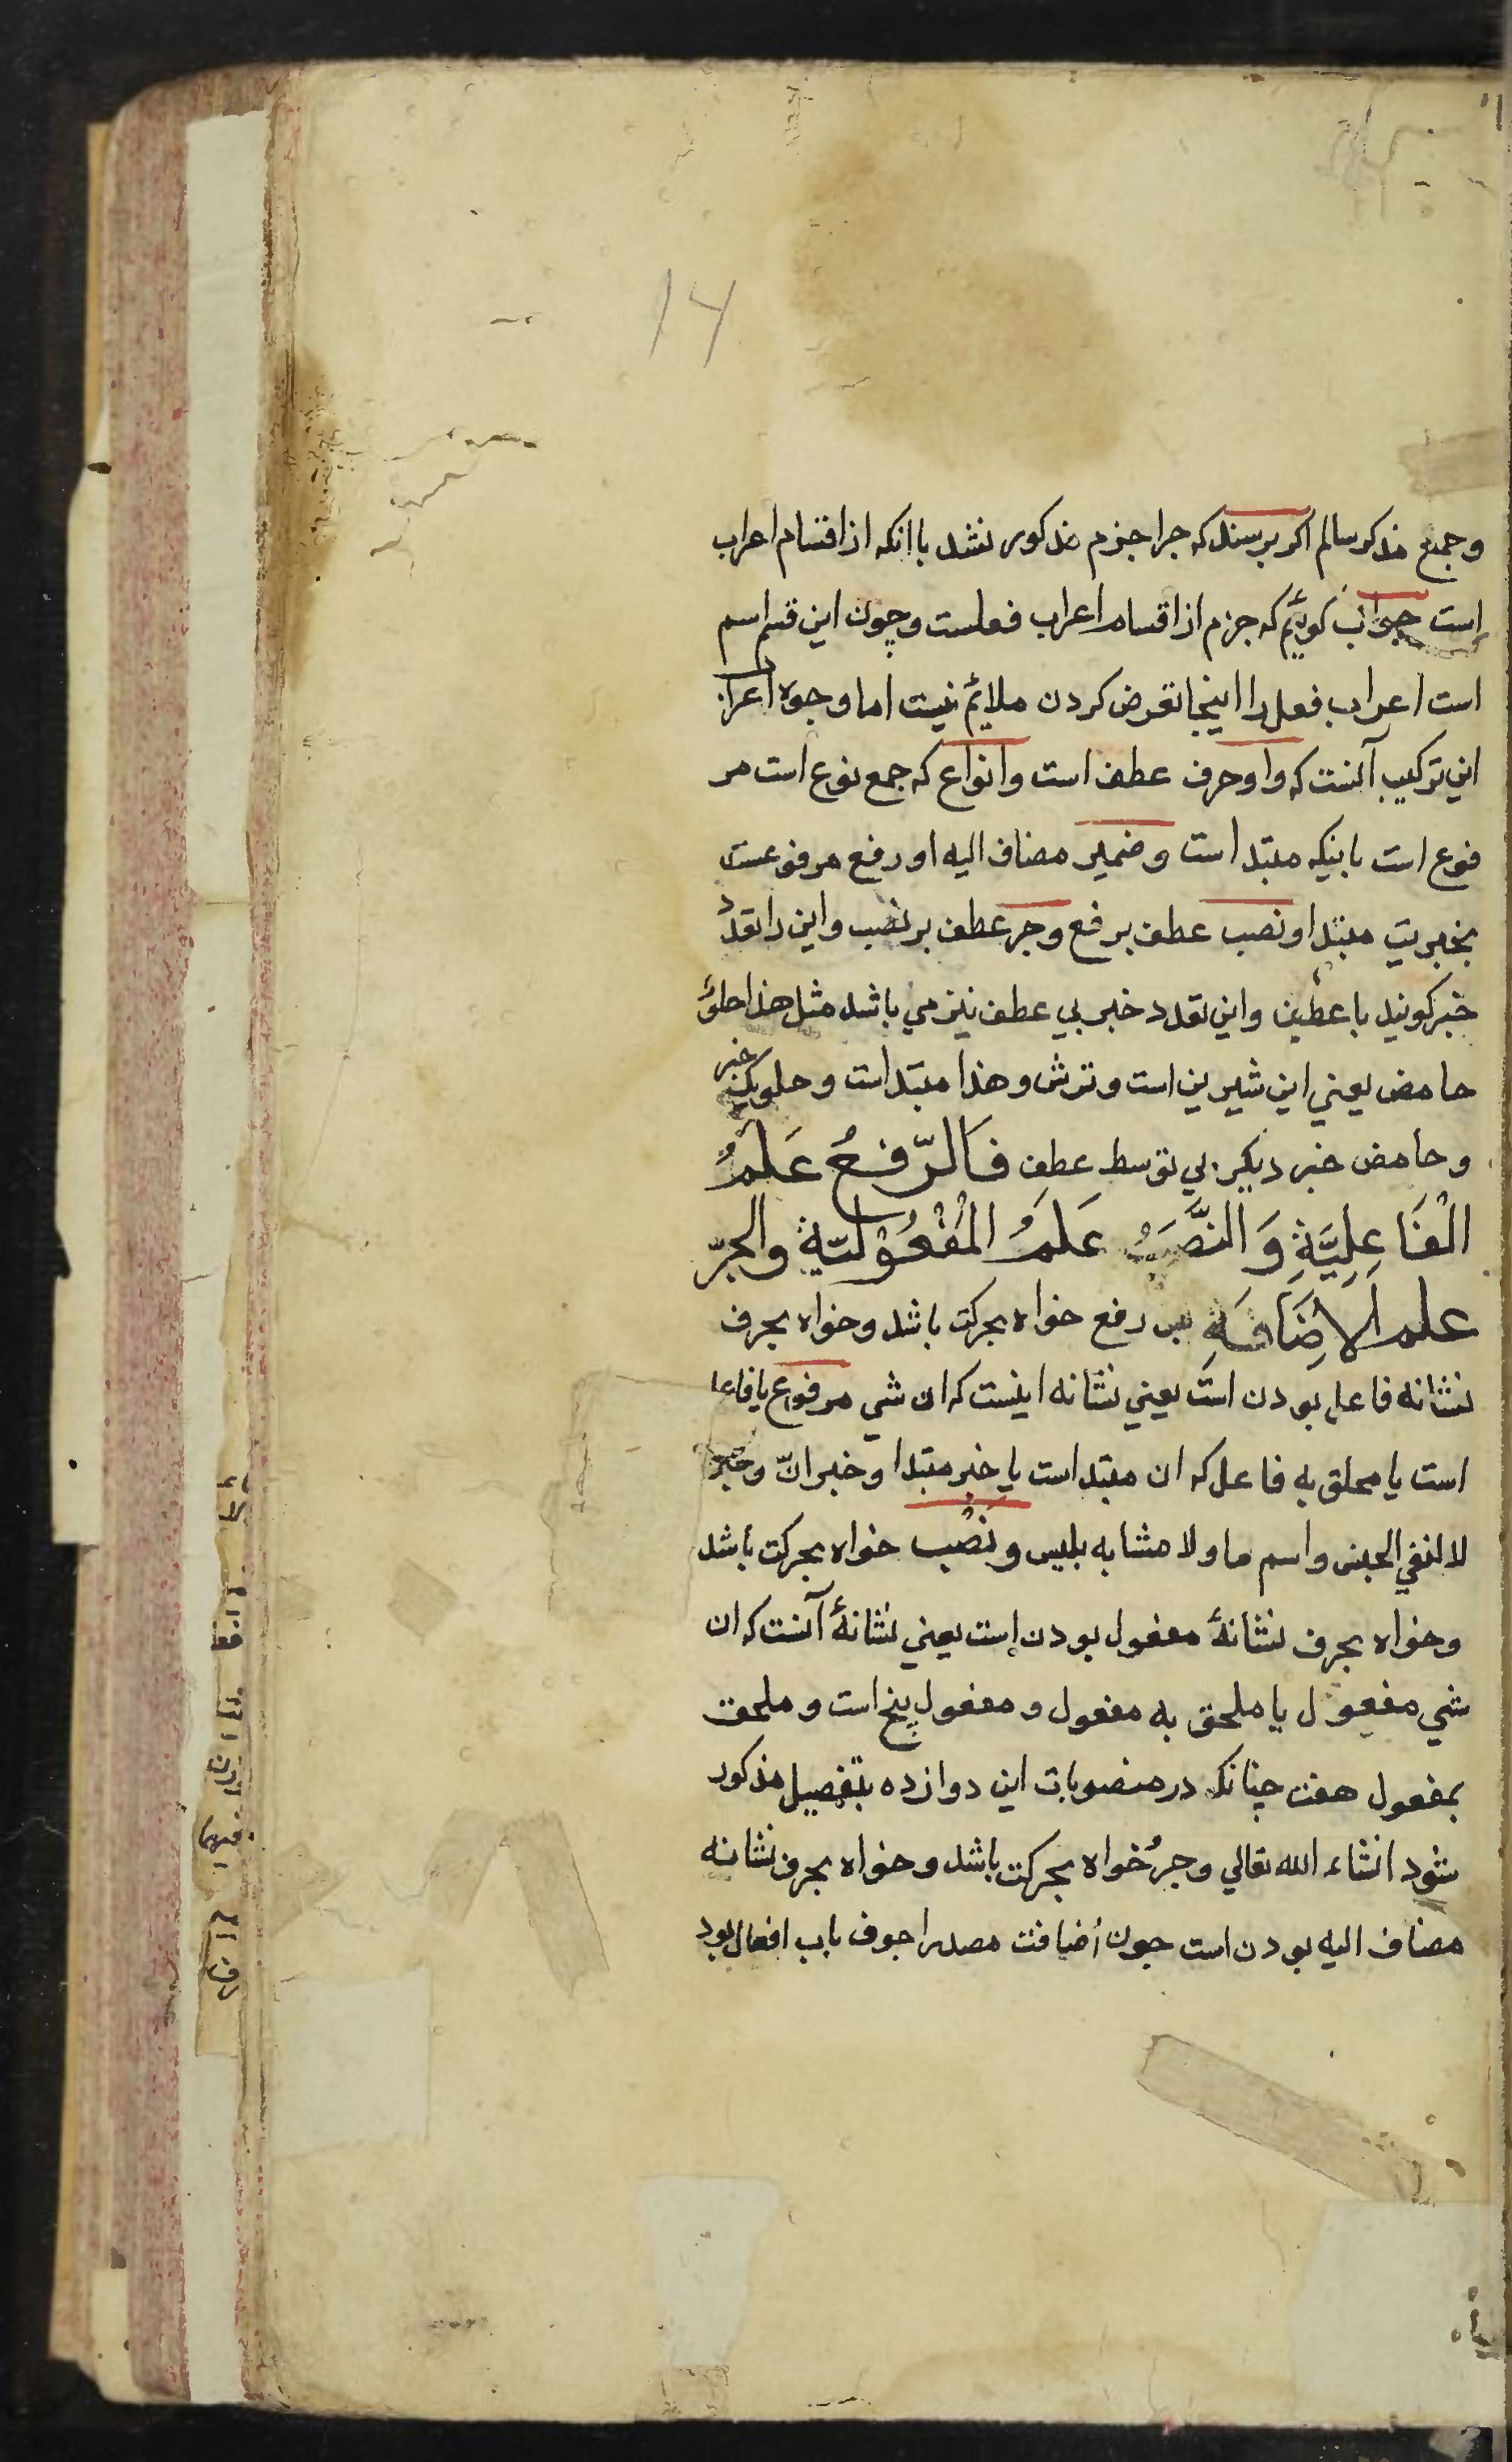 ۱۴
وجمع مذکر سالم اکر برسند که جرا جزم مذکور نشد با انکه از اقسام اعراب
است جواب کوئیم که جزم از اقسام اعراب فعلست وچون این قسم اسم
است اعراب فعل را اینجا تعرض کردن ملائم نیست اما وجوه اعراب
این ترکیب آنست که واو حرف عطف است وانواع که جمع نوع است مر
فوع است بابنیکه مبتدا است وضمیر مضاف الیه او رفع مرفوعست
بخبریت مبتدا ونصب عطف برفع وجر عطف بر نصب واین را تعدد
خبر کویند با عطف واین تعدد خبر بی عطف نیز می باشد مثل هذا حلوٌ
حامض یعنی این شیرین است وترش وهذا مبتدا است وحلو یک خبر
وحامض خبر دیکر بی توسط عطف فَالرَّفعُ عَلَمُ
الْفَاعِلِيَّةِ وَالنَّصَبُ عَلَمُ الْمَفْعُوْلِيَّةِ والجرّ
علم الاِضَافَةِ بس رفع خواه بحرکت باشد وخواه بحرف
نشانه فاعل بودن است یعنی نشانه اینست که ان شی مرفوع یا فاعل
است یا محلق به فاعل که ان مبتدا است یا خبر مبتدا وخبر انّ وخبر
لا لنفی الجنس واسم ما ولا مشابه بلیس ونَصْب خواه بحرکت باشد
وخواه بحرف نشانهٔ مفعول بودن است یعنی نشانهٔ آنست که ان
شی مفعول یا ملحق به مفعول ومفعول پنج است وملحق
بمفعول هفت چنانکه در منصوبات این دوازده بتفصیل مذکور
شود انشاء الله تعالی وجرُ خواه بحرکت باشد وخواه بحرف نشانه
مضاف الیه بودن است جون اضافت مصدر اجوف باب افعال بود